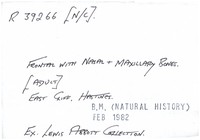 R 39266 [N/C].
FRONTAL WITH NASAL + MAXILLARY BONES.
[ADULT]
EAST CLIFF, HASTINGS.
B.M. (NATURAL HISTORY)
FEB 1982
EX. LEWIS ABBOTT COLLECTION.